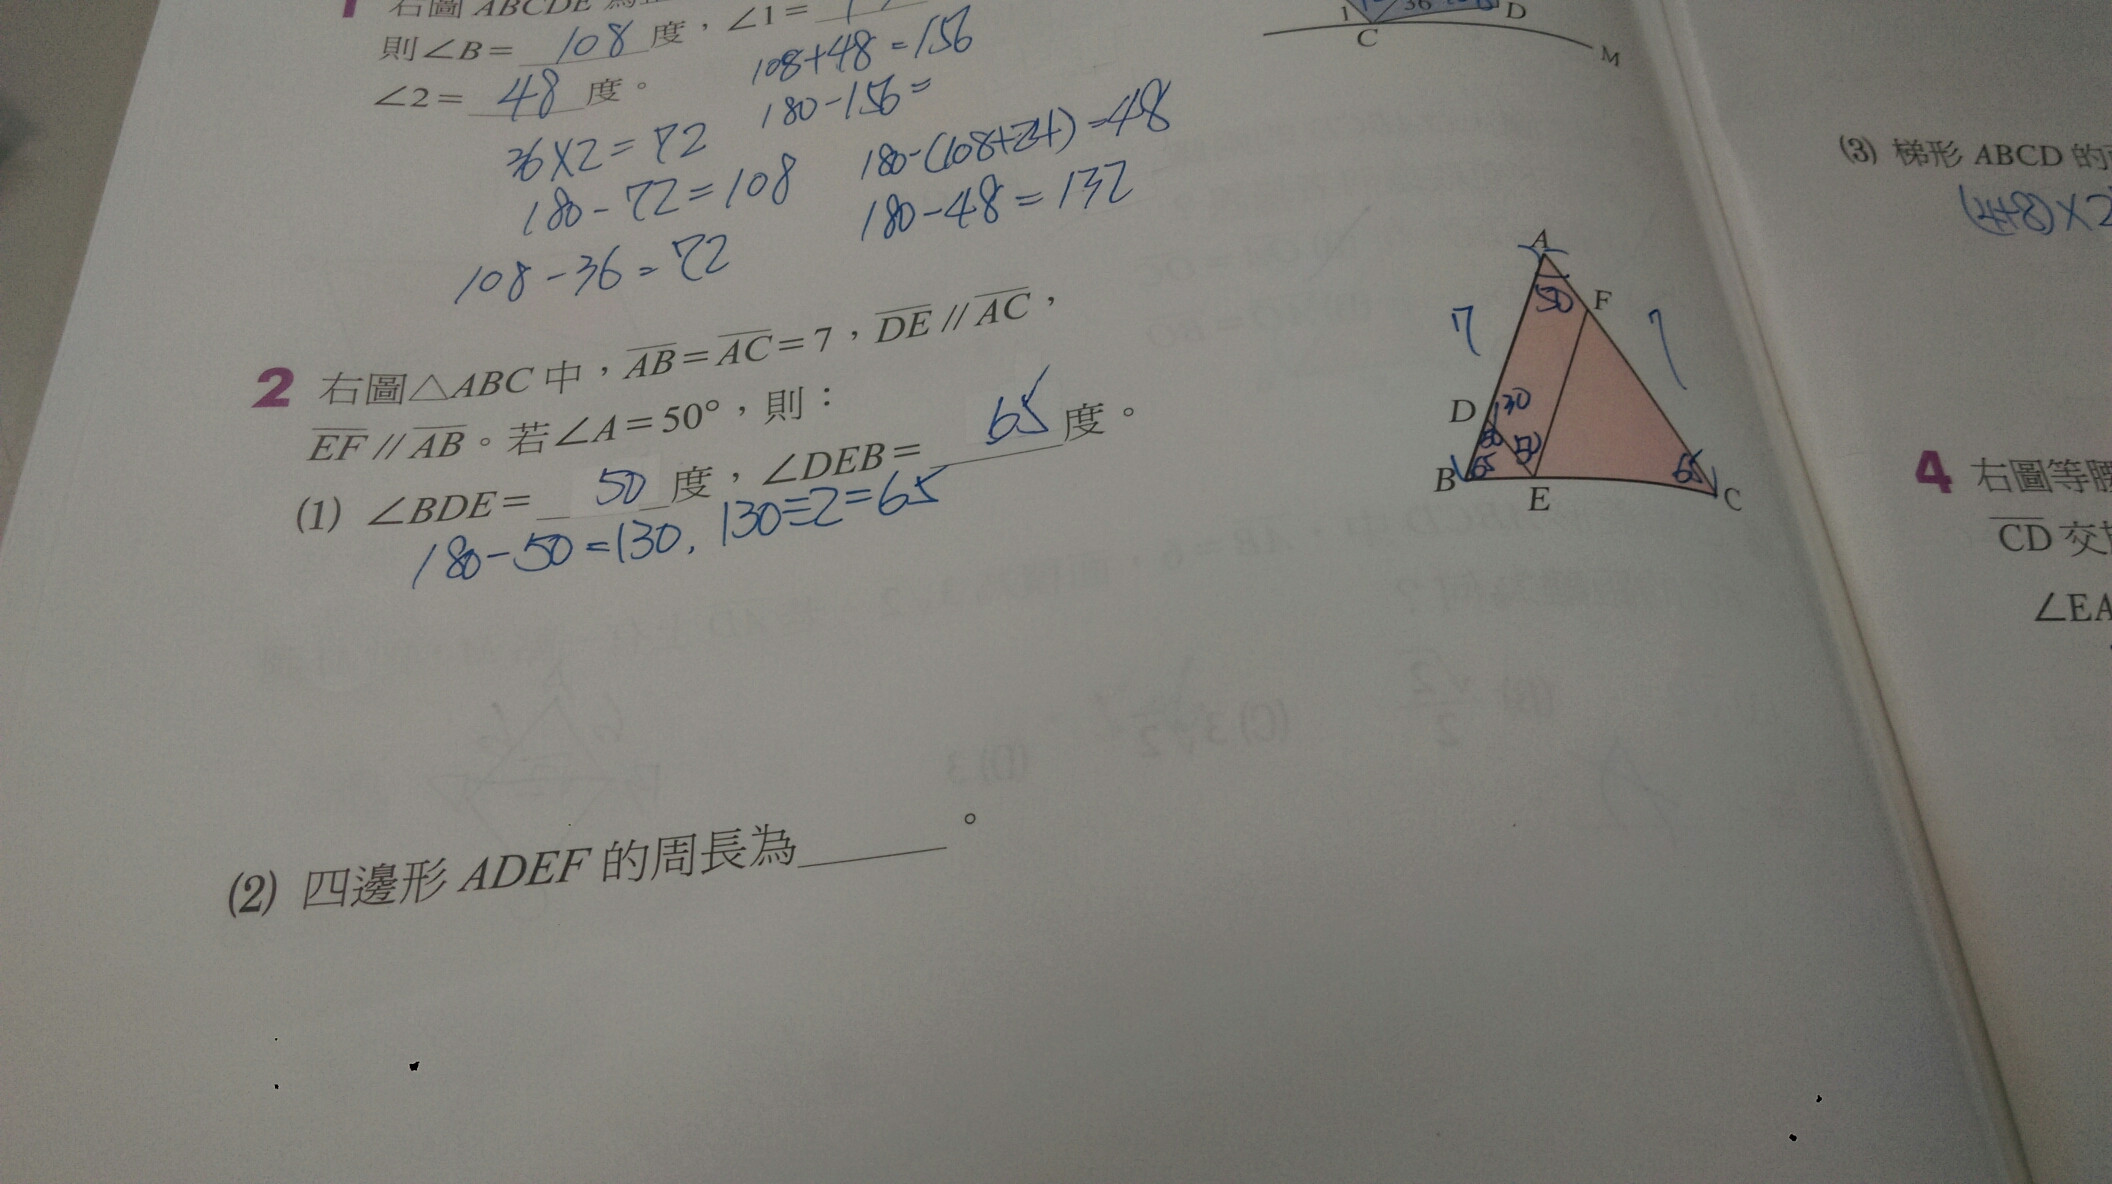 右圖 ABCDE
則∠B= 108 度，∠1=
∠2= 48 度。
108+48=156
180-156=
36×2=72
180-72=108
108-36=72
180-(108+24)=48
180-48=132
1 36 D
C
M
2 右圖△ABC中，AB=AC=7，DE//AC，
EF//AB。若∠A=50°，則：
(1) ∠BDE= 50 度，∠DEB= 65 度。
180-50=130, 130÷2=65
A
50 F
7 7
D 130
50 50
B 65 65 C
E
(2) 四邊形ADEF的周長為______。
(3) 梯形ABCD的
(4+8)×2
4 右圖等腰
CD交
∠EA